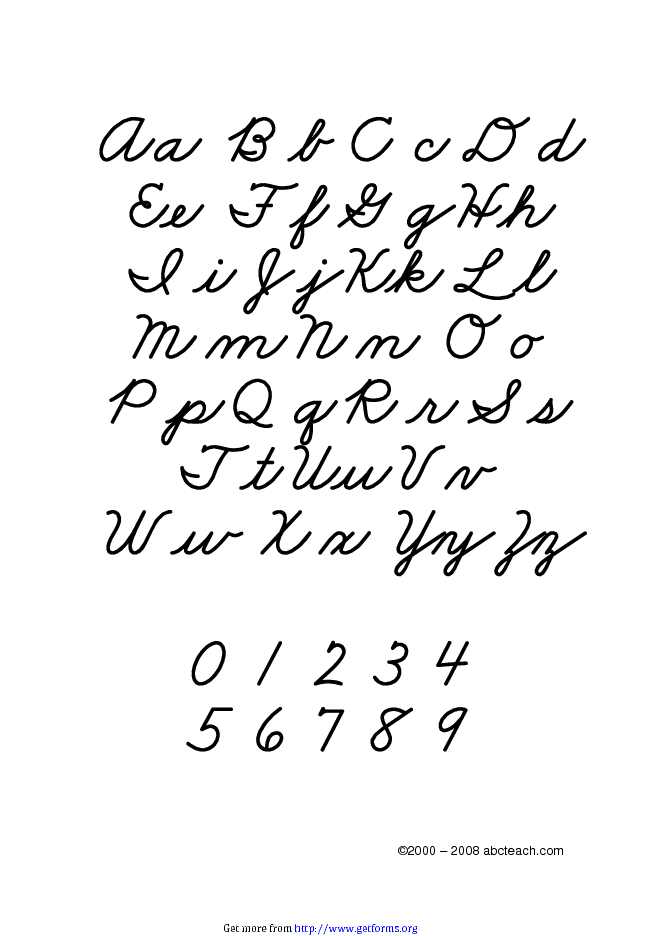 Aa B b C c D d
Ee F f G g H h
I i J j K k L l
M m N n O o
P p Q q R r S s
T t U u V v
W w X x Y y Z z
0 1 2 3 4
5 6 7 8 9
©2000 – 2008 abcteach.com
Get more from http://www.getforms.org